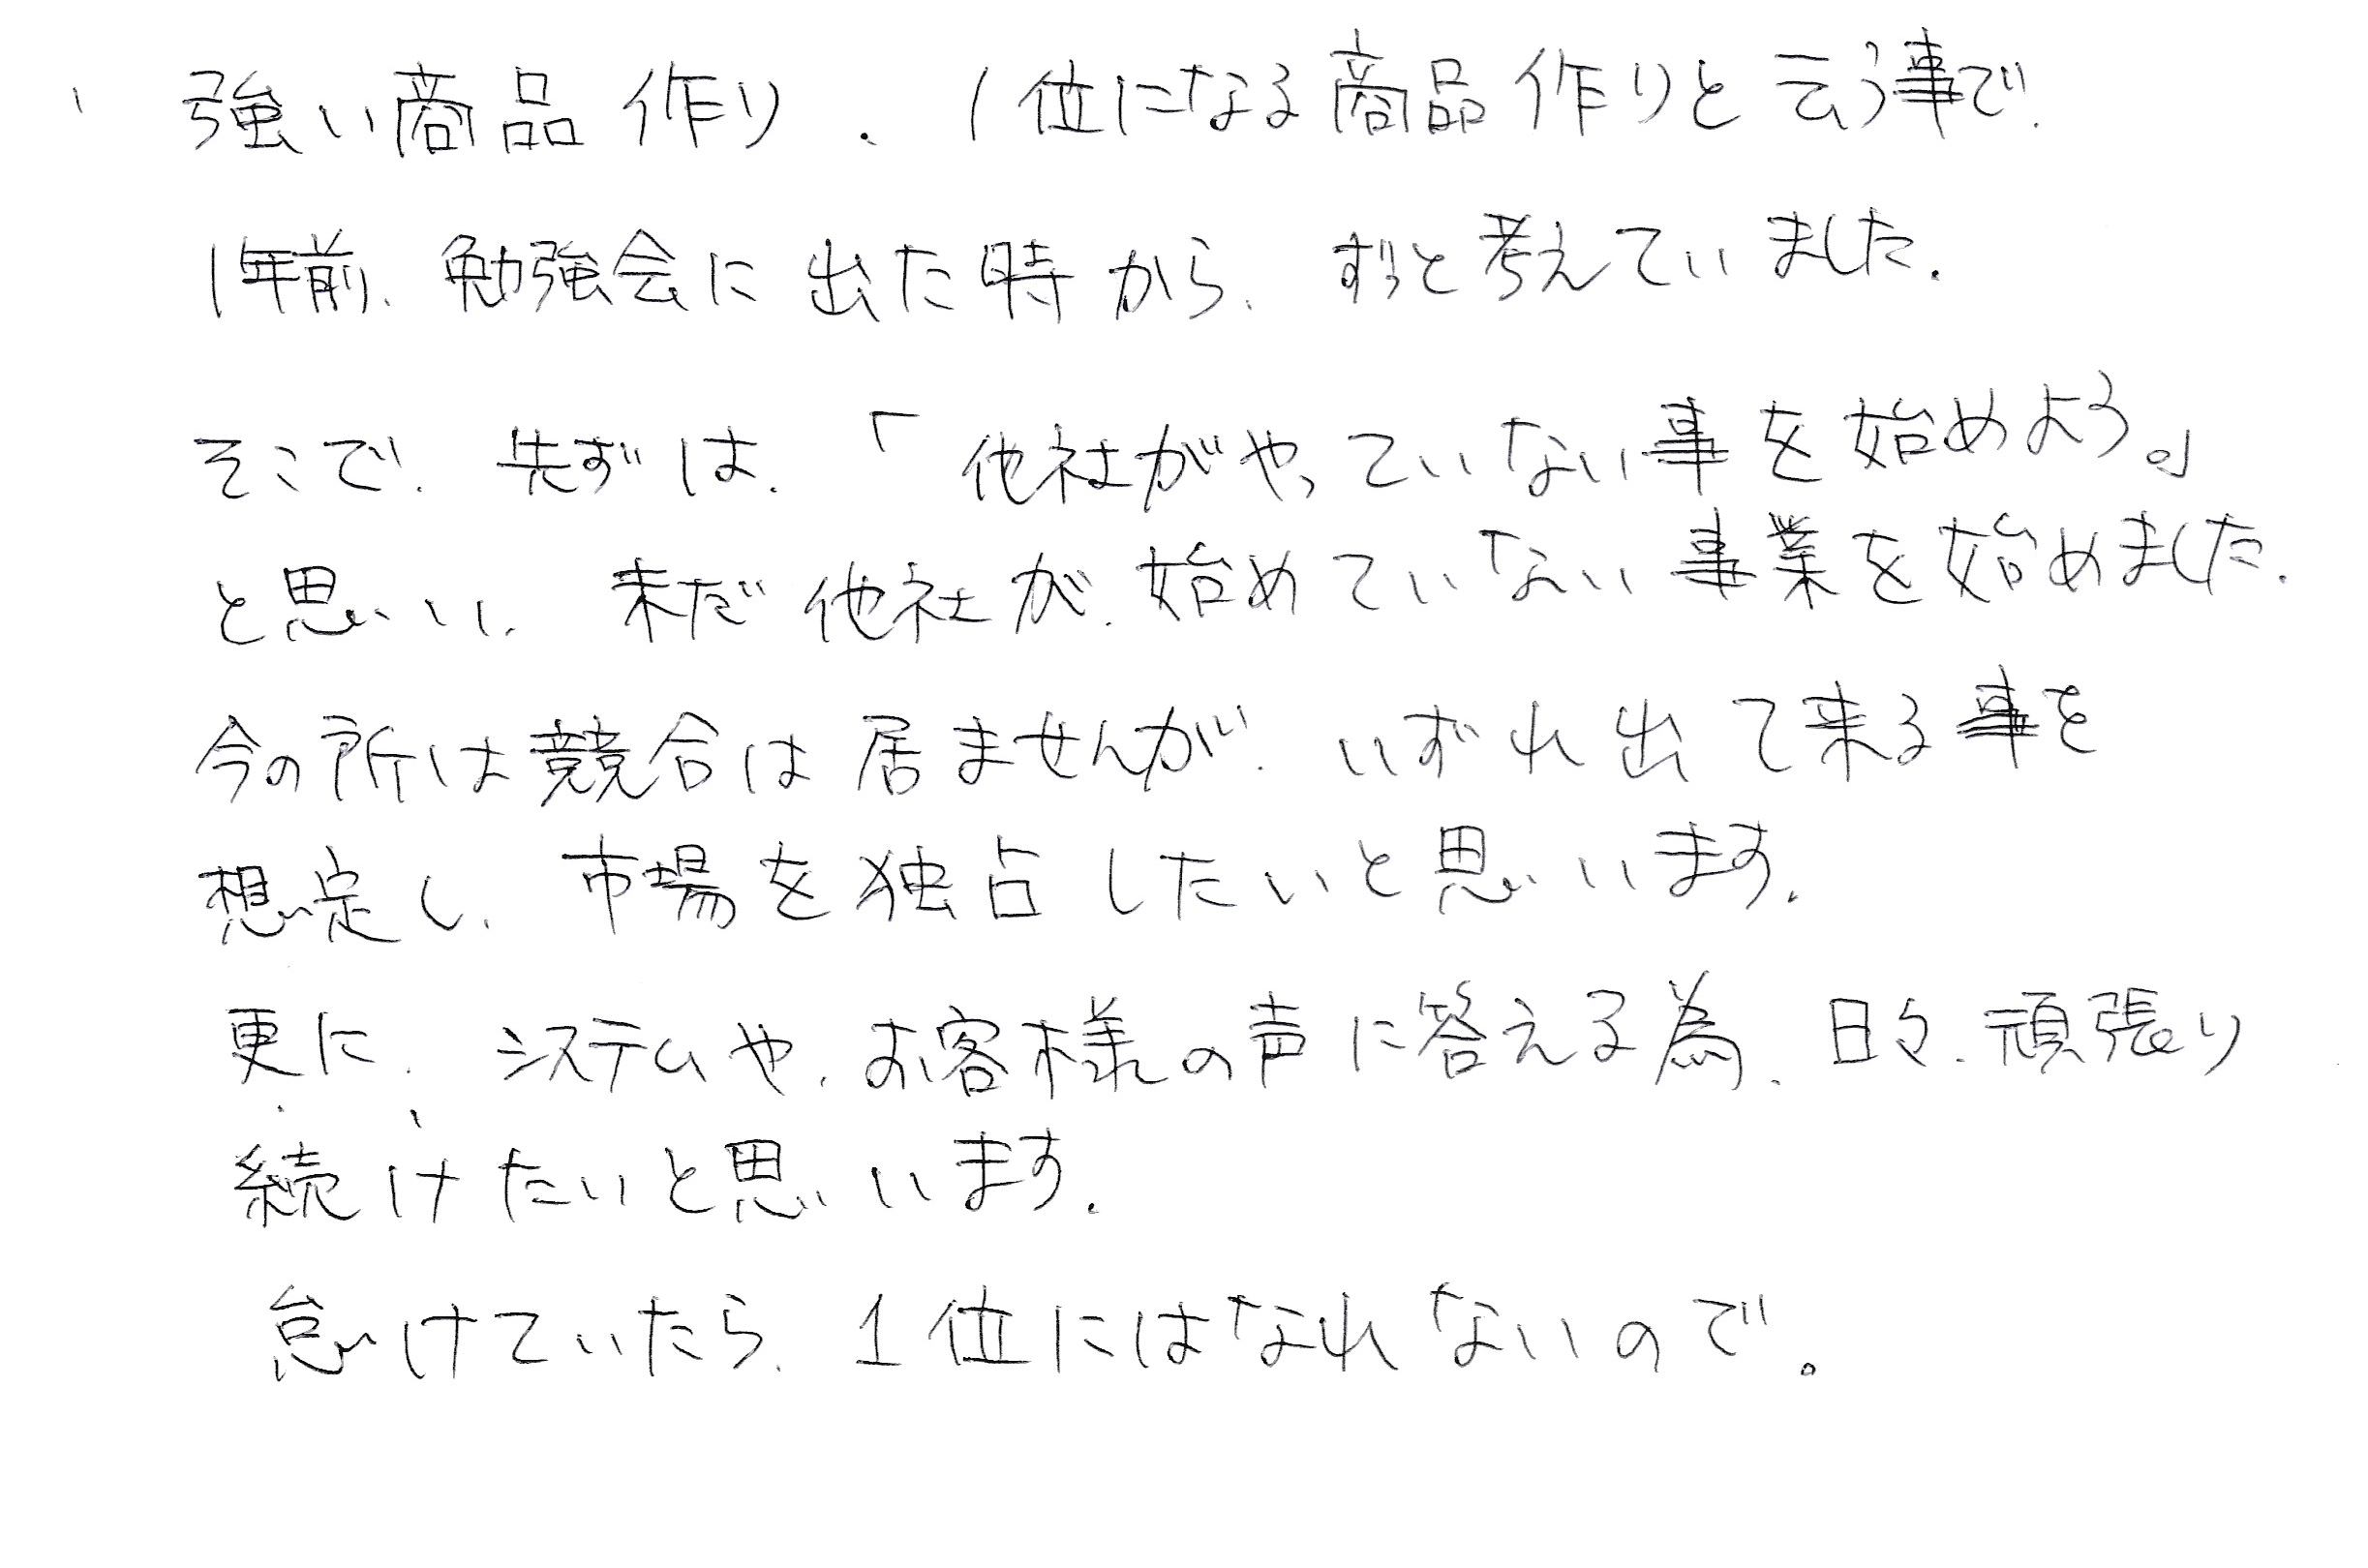 強い商品作り、1位になる商品作りと云う事で、
1年前、勉強会に出た時から、ずっと考えていました。
そこで、先ずは、「他社がやっていない事を始めよう。」
と思いい、未だ他社が、始めていない事業を始めました。
今の所は競合は居ませんが、いずれ出て来る事を
想定し、市場を独占したいと思います。
更に、システムや、お客様の声に答える為、日々、頑張り
続けたいと思います。
怠けていたら、1位にはなれないので。